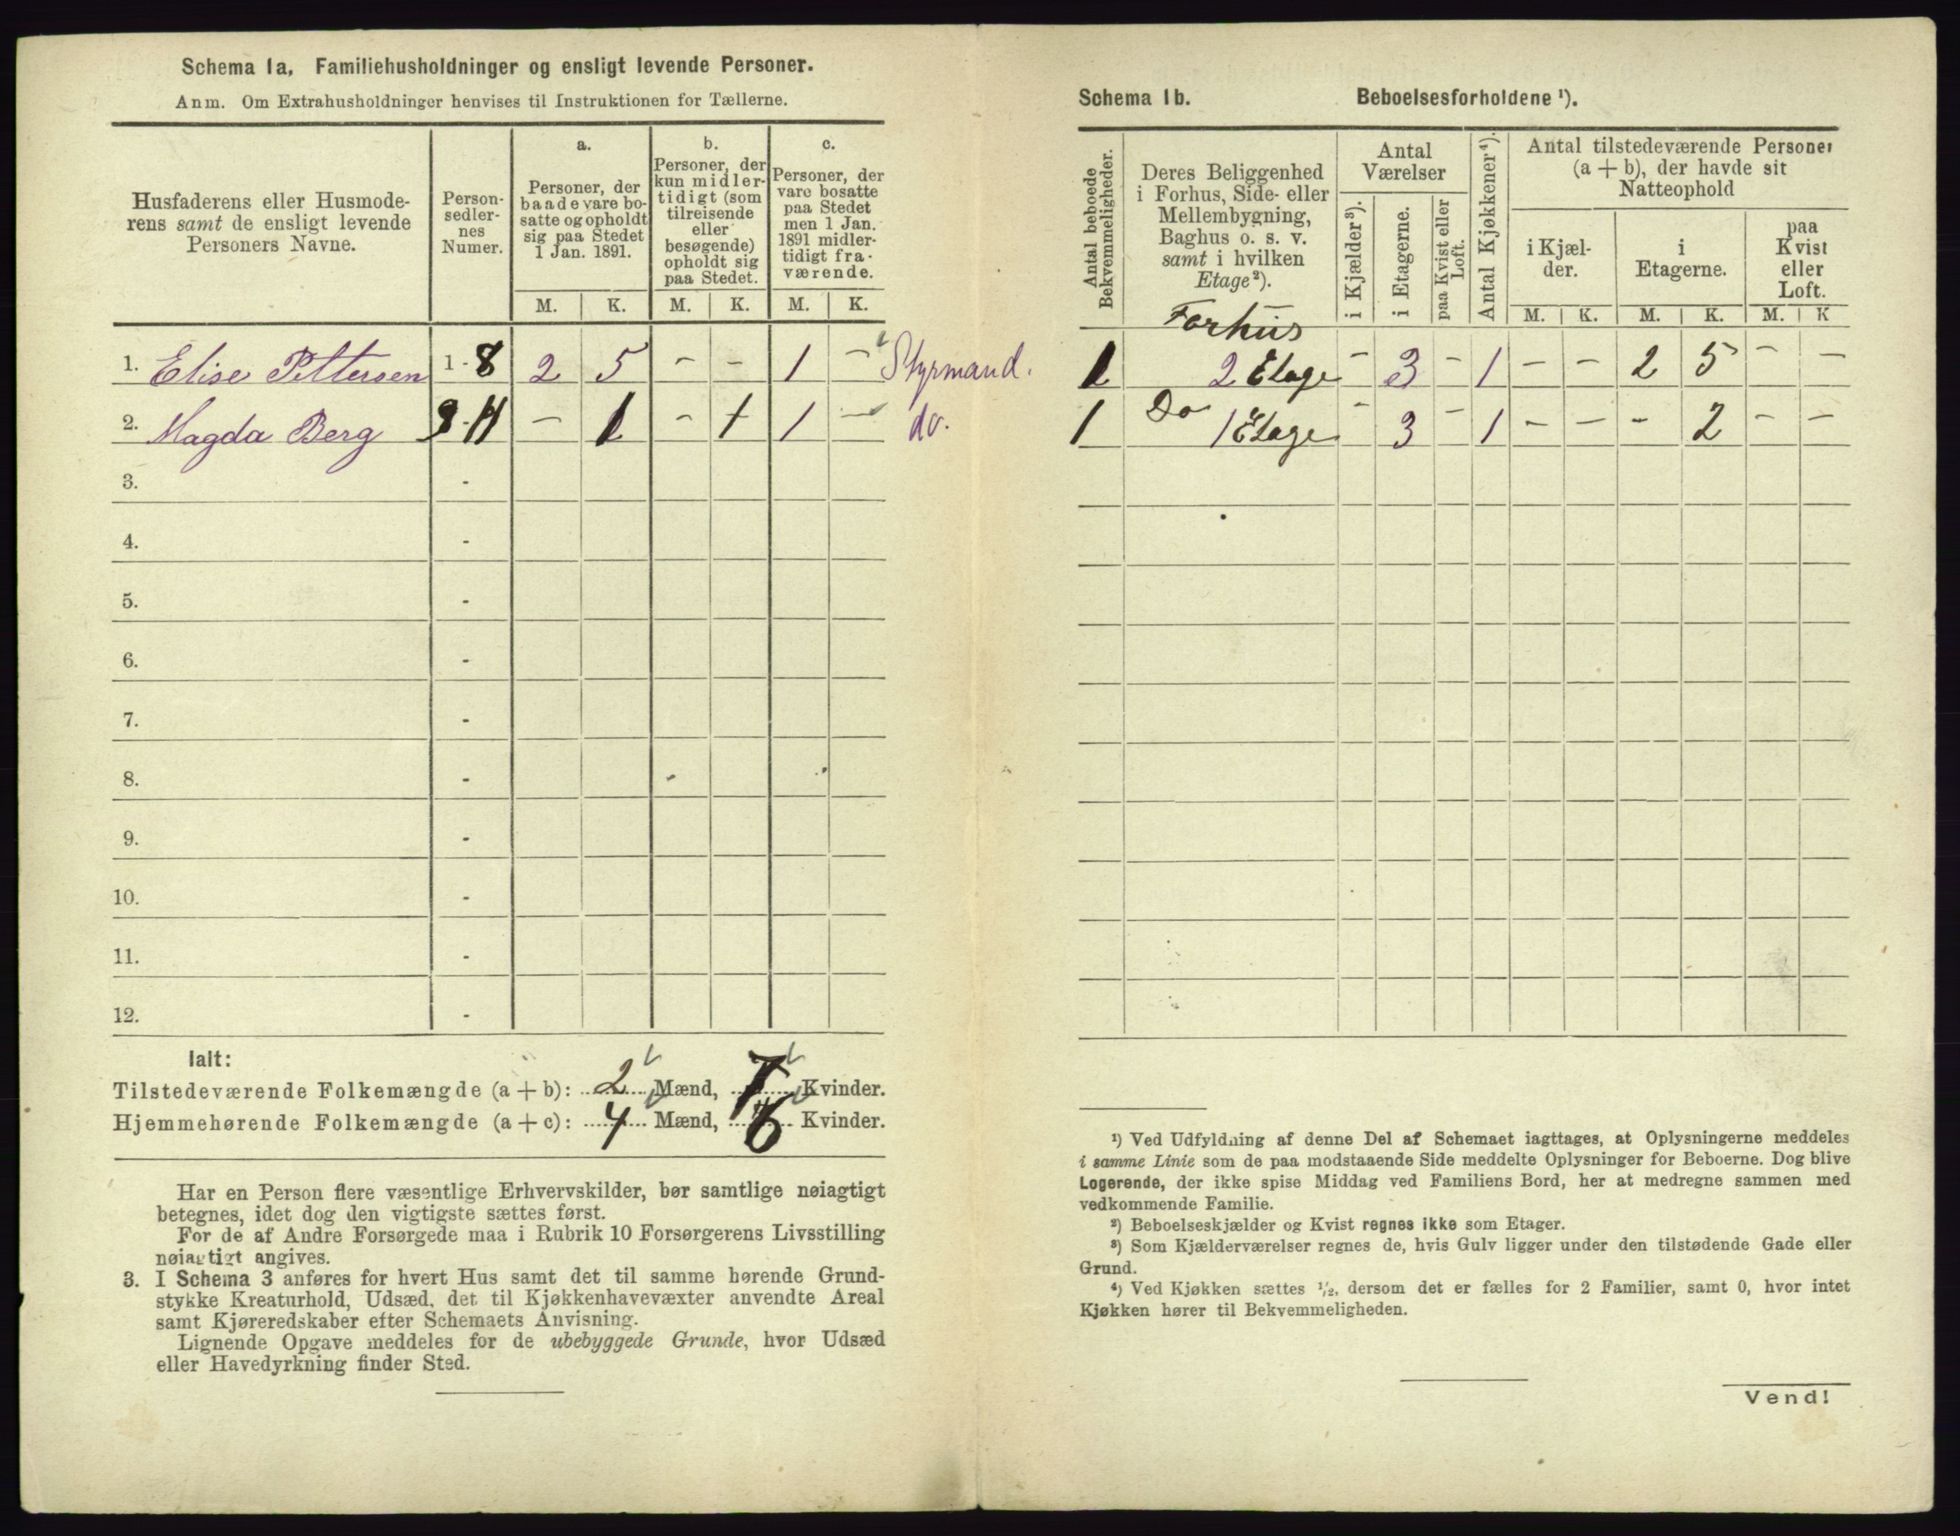 Schema 1a. Familiehusholdninger og ensligt levende Personer.
Anm. Om Extrahusholdninger henvises til Instruktionen for Tællerne.
Husfaderens eller Husmode-
rens samt de ensligt levende
Personers Navne.
Person-
sedler-
nes
Numer.
a.
Personer, der
baade vare bo-
satte og opholdt
sig paa Stedet
1 Jan. 1891.
b.
Personer, der
kun midler-
tidigt (som
tilreisende
eller
besøgende)
opholdt sig
paa Stedet.
c.
Personer, der
vare bosatte
paa Stedet
men 1 Jan.
1891 midler-
tidigt fra-
værende.
M. K. M. K. M. K.
1. Elise Pettersen 1-8 2 5 - - 1 - Styrmand.
2. Magda Berg 9-11 - 1 - 1 1 - do.
3. -
4. -
5. -
6. -
7. -
8. -
9. -
10. -
11. -
12. -
Ialt:
Tilstedeværende Folkemængde (a+b): 2 Mænd, 7 Kvinder.
Hjemmehørende Folkemængde (a+c): 4 Mænd, 6 Kvinder.
Har en Person flere væsentlige Erhvervskilder, bør samtlige nøiagtigt
betegnes, idet dog den vigtigste sættes først.
For de af Andre Forsørgede maa i Rubrik 10 Forsørgerens Livsstilling
nøiagtigt angives.
3. I Schema 3 anføres for hvert Hus samt det til samme hørende Grund-
stykke Kreaturhold, Udsæd, det til Kjøkkenhavevæxter anvendte Areal
samt Kjøreredskaber efter Schemaets Anvisning.
Lignende Opgave meddeles for de ubebyggede Grunde, hvor Udsæd
eller Havedyrkning finder Sted.
Schema 1b. Beboelsesforholdene ¹).
Antal beboede
Bekvemmeligheder.
Deres Beliggenhed
i Forhus, Side- eller
Mellembygning,
Baghus o. s. v.
samt i hvilken
Etage²).
Antal
Værelser
i Kjælder³).
i Etagerne.
paa Kvist eller
Loft.
Antal Kjøkkener⁴).
Antal tilstedeværende Personer
(a + b), der havde sit
Natteophold
i Kjæl-
der.
i
Etagerne.
paa
Kvist
eller
Loft.
M. K. M. K. M. K
Forhus
1 2 Etage - 3 - 1 - - 2 5 - -
1 Do 1 Etage - 3 - 1 - - - 2 - -
¹) Ved Udfyldning af denne Del af Schemaet iagttages, at Oplysningerne meddeles
i samme Linie som de paa modstaaende Side meddelte Oplysninger for Beboerne. Dog blive
Logerende, der ikke spise Middag ved Familiens Bord, her at medregne sammen med
vedkommende Familie.
²) Beboelseskjælder og Kvist regnes ikke som Etager.
³) Som Kjælderværelser regnes de, hvis Gulv ligger under den tilstødende Gade eller
Grund.
⁴) Ved Kjøkken sættes ¹/₂, dersom det er fælles for 2 Familier, samt 0, hvor intet
Kjøkken hører til Bekvemmeligheden.
Vend!